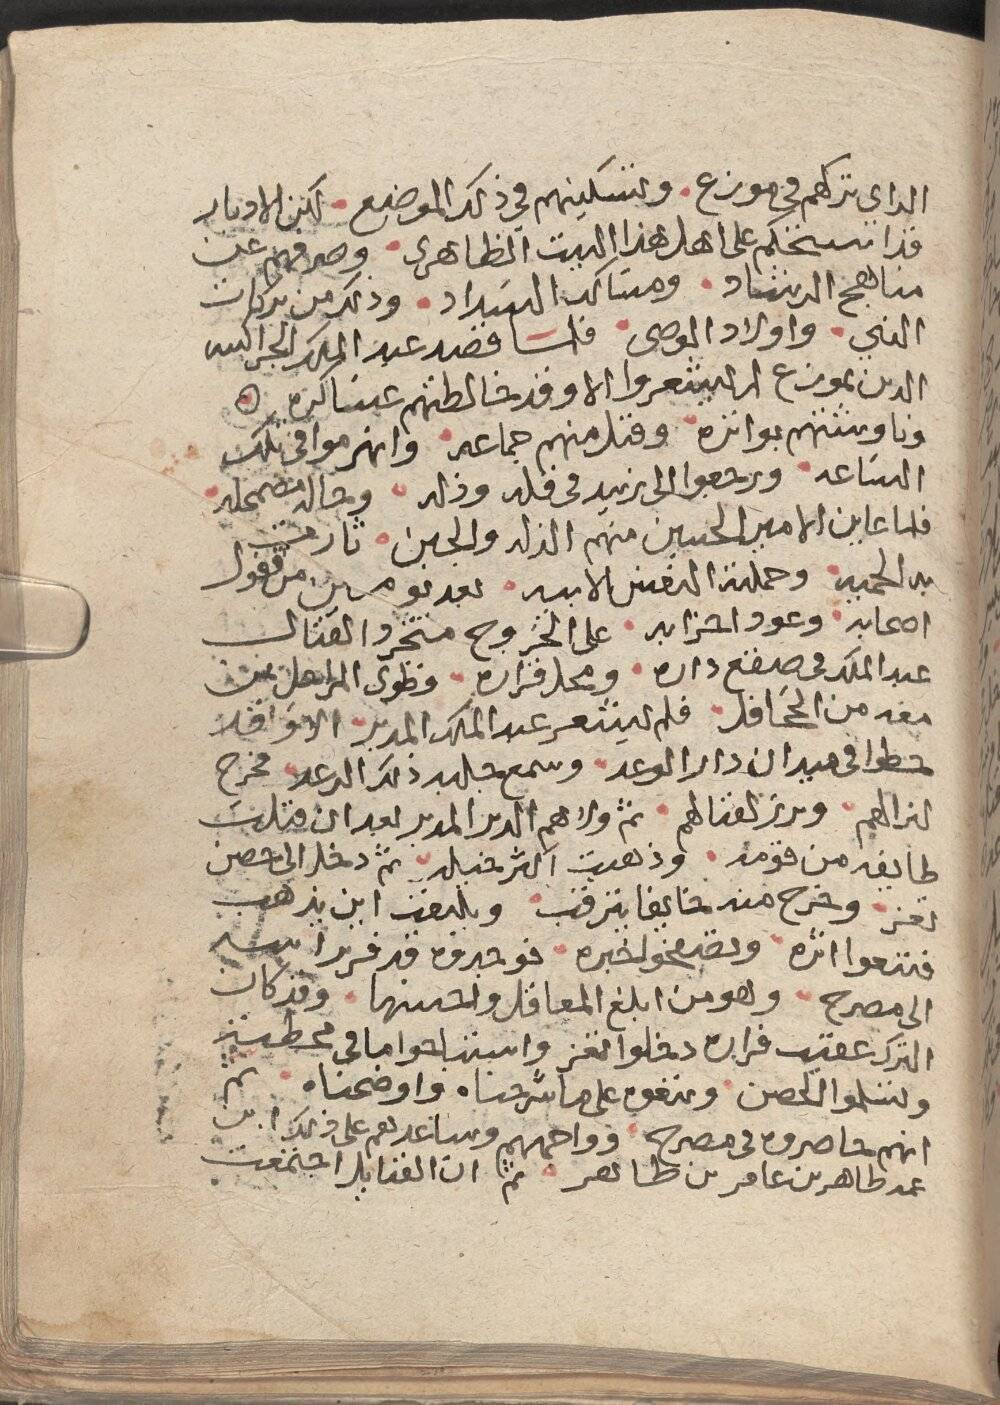 الراى تركهم في موزع ولتسكينهم في ذلك الموضع لكن الادبار
قد استحكم على اهل هذا البيت الظاهرى وصرفهم عن
مناهج الرشاد ومسالك السداد وذلك من بركات
النبي واولاد الوصى فلما قصد عبد الملك الجراكسه
الذين بموزع لم يشعروا الا وقد خالطتهم عساكره ه
وناوشتهم بواتره وقتل منهم جماعه وانهزموا في تلك
الساعه ورجعوا الى زبيد في قله وذله وحالة مضمحله
فلما عاين الامير الحسين منهم الذله والجبن ثارت
به الحميه وحملته النفس الابيه بعد يومين من قفول
اصحابه وعود احزابه على الخروج متجردا لقتال
عبد الملك في صقع داره ومحل قراره وطوى المراحل بمن
معه من الجحافل فلم يشعر عبد الملك المدبر الا وقد
حطوا في ميدان دار الوعد وسمع جلبه ذلك الرعد فخرج
لنزالهم وبرز لقتالهم ثم ولاهم الدبر المدبر بعد ان قتلت
طايفه من قومه وذهبت اكثر خيله ثم دخل الى حصن
تعز وخرج منه خايفا يترقب ويلتفت اين يذهب
فتتبعوا اثره وقصد نحو الخبره فوجدوه قد فر براسه
الى مصرح وهو من ابلغ المعاقل واحسنها وقد كان
الترك عقيب فراره دخلوا تعز واستباحوا ما في محطته
وتسلموا الحصن ونفوه على ما شرحناه واوضحناه ثم
انهم حاصروه في مصرح وواجههم وساعدهم على ذلك ابن
عمه طاهر بن عامر بن طاهر ثم ان القبايل اجتمعت